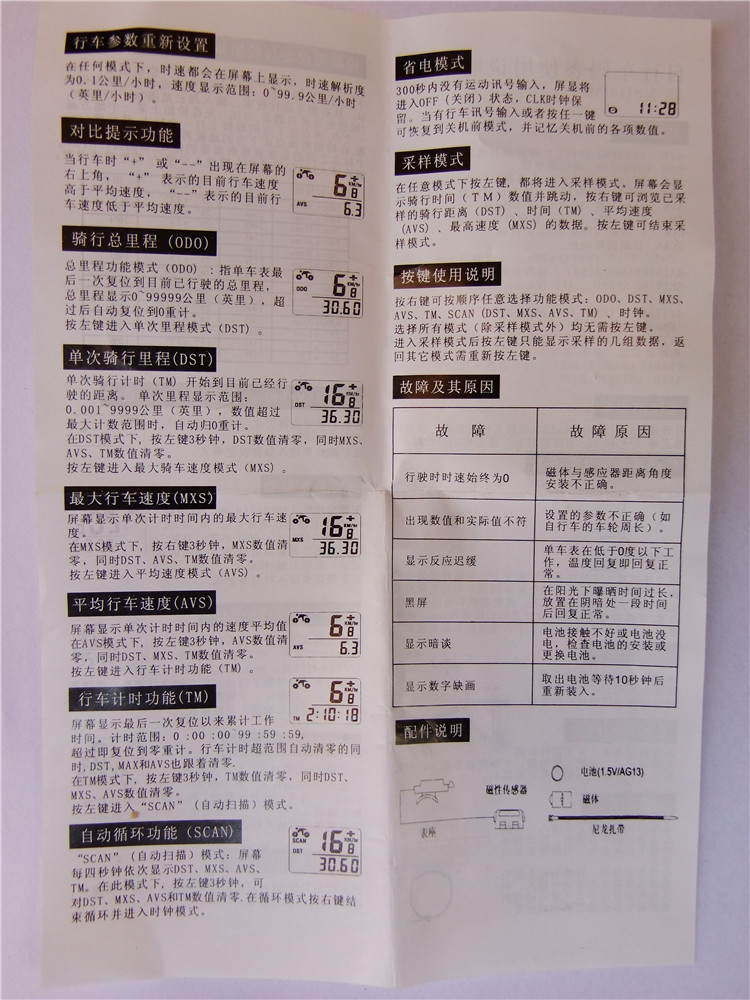 行车参数重新设置
在任何模式下，时速都会在屏幕上显示，时速解析度
为0.1公里/小时，速度显示范围：0~99.9公里/小时
（英里/小时）。
对比提示功能
当行车时“+” 或“--”出现在屏幕的
右上角， “+” 表示的目前行车速度
高于平均速度， “--”表示的目前行
车速度低于平均速度。
6 8
+
KM/H
AVS 6.3
骑行总里程 (ODO)
总里程功能模式（ODO）：指单车表最
后一次复位到目前已行驶的总里程，
总里程显示0~99999公里（英里），超
过后自动复位到0重计。
按左键进入单次里程模式（DST）。
6 8
+
KM/H
ODO
30.60
单次骑行里程(DST)
单次骑行计时（TM）开始到目前已经行
驶的距离。 单次里程显示范围：
0.001~9999公里（英里），数值超过
最大计数范围时，自动归0重计。
在DST模式下，按左键3秒钟，DST数值清零，同时MXS、
AVS、TM数值清零。
按左键进入最大骑车速度模式（MXS）。
16 8
+
KM/H
DST
36.30
最大行车速度(MXS)
屏幕显示单次计时时间内的最大行车速
度。
在MXS模式下，按右键3秒钟，MXS数值清
零，同时DST、AVS、TM数值清零。
按左键进入平均速度模式（AVS）。
16 8
+
KM/H
MXS
36.30
平均行车速度(AVS)
屏幕显示单次计时时间内的速度平均值
在AVS模式下，按左键3秒钟，AVS数值清
零，同时DST、MXS、TM数值清零。
按左键进入行车计时功能（TM）。
6 8
+
KM/H
AVS 6.3
行车计时功能(TM)
屏幕显示最后一次复位以来累计工作
时间。计时范围：0 :00 :00~99 :59 :59,
超过即复位到零重计。行车计时超范围自动清零的同
时, DST, MAX和AVS也跟着清零.
在TM模式下，按左键3秒钟，TM数值清零，同时DST、
MXS、AVS数值清零。
按左键进入“SCAN”（自动扫描）模式。
6 8
+
KM/H
TM 2:10:18
自动循环功能 (SCAN)
“SCAN”（自动扫描）模式：屏幕
每四秒钟依次显示DST、MXS、AVS、
TM。在此模式下，按左键3秒钟，可
对DST、MXS、AVS和TM数值清零.在循环模式按右键结
束循环并进入时钟模式。
16 8
+
KM/H
SCAN
DST
30.60
省电模式
300秒内没有运动讯号输入，屏显将
进入OFF（关闭）状态，CLK时钟保
留。当有行车讯号输入或者按任一键
可恢复到关机前模式，并记忆关机前的各项数值。
11:28
采样模式
在任意模式下按左键, 都将进入采样模式。屏幕会显
示骑行时间（ＴＭ）数值并跳动，按右键可浏览已采
样的骑行距离（DST）、时间（TM）、平均速度
(AVS) 、最高速度 (MXS) 的数据。按左键可结束采
样模式。
按键使用说明
按右键可按顺序任意选择功能模式：ODO、DST、MXS、
AVS、TM、SCAN（DST、MXS、AVS、TM）、时钟。
选择所有模式（除采样模式外）均无需按左键。
进入采样模式后按左键只能显示采样的几组数据，返
回其它模式需重新按左键。
故障及其原因
故 障
故障原因
行驶时时速始终为0
磁体与感应器距离角度
安装不正确。
出现数值和实际值不符
设置的参数不正确（如
自行车的车轮周长）。
显示反应迟缓
单车表在低于0度以下工
作，温度回复即回复正
常。
黑屏
在阳光下曝晒时间过长，
放置在阴暗处一段时间
后回复正常。
显示暗谈
电池接触不好或电池没
电，检查电池的安装或
更换电池。
显示数字缺画
取出电池等待10秒钟后
重新装入。
配件说明
表座
磁性传感器
电池(1.5V/AG13)
磁体
尼龙扎带